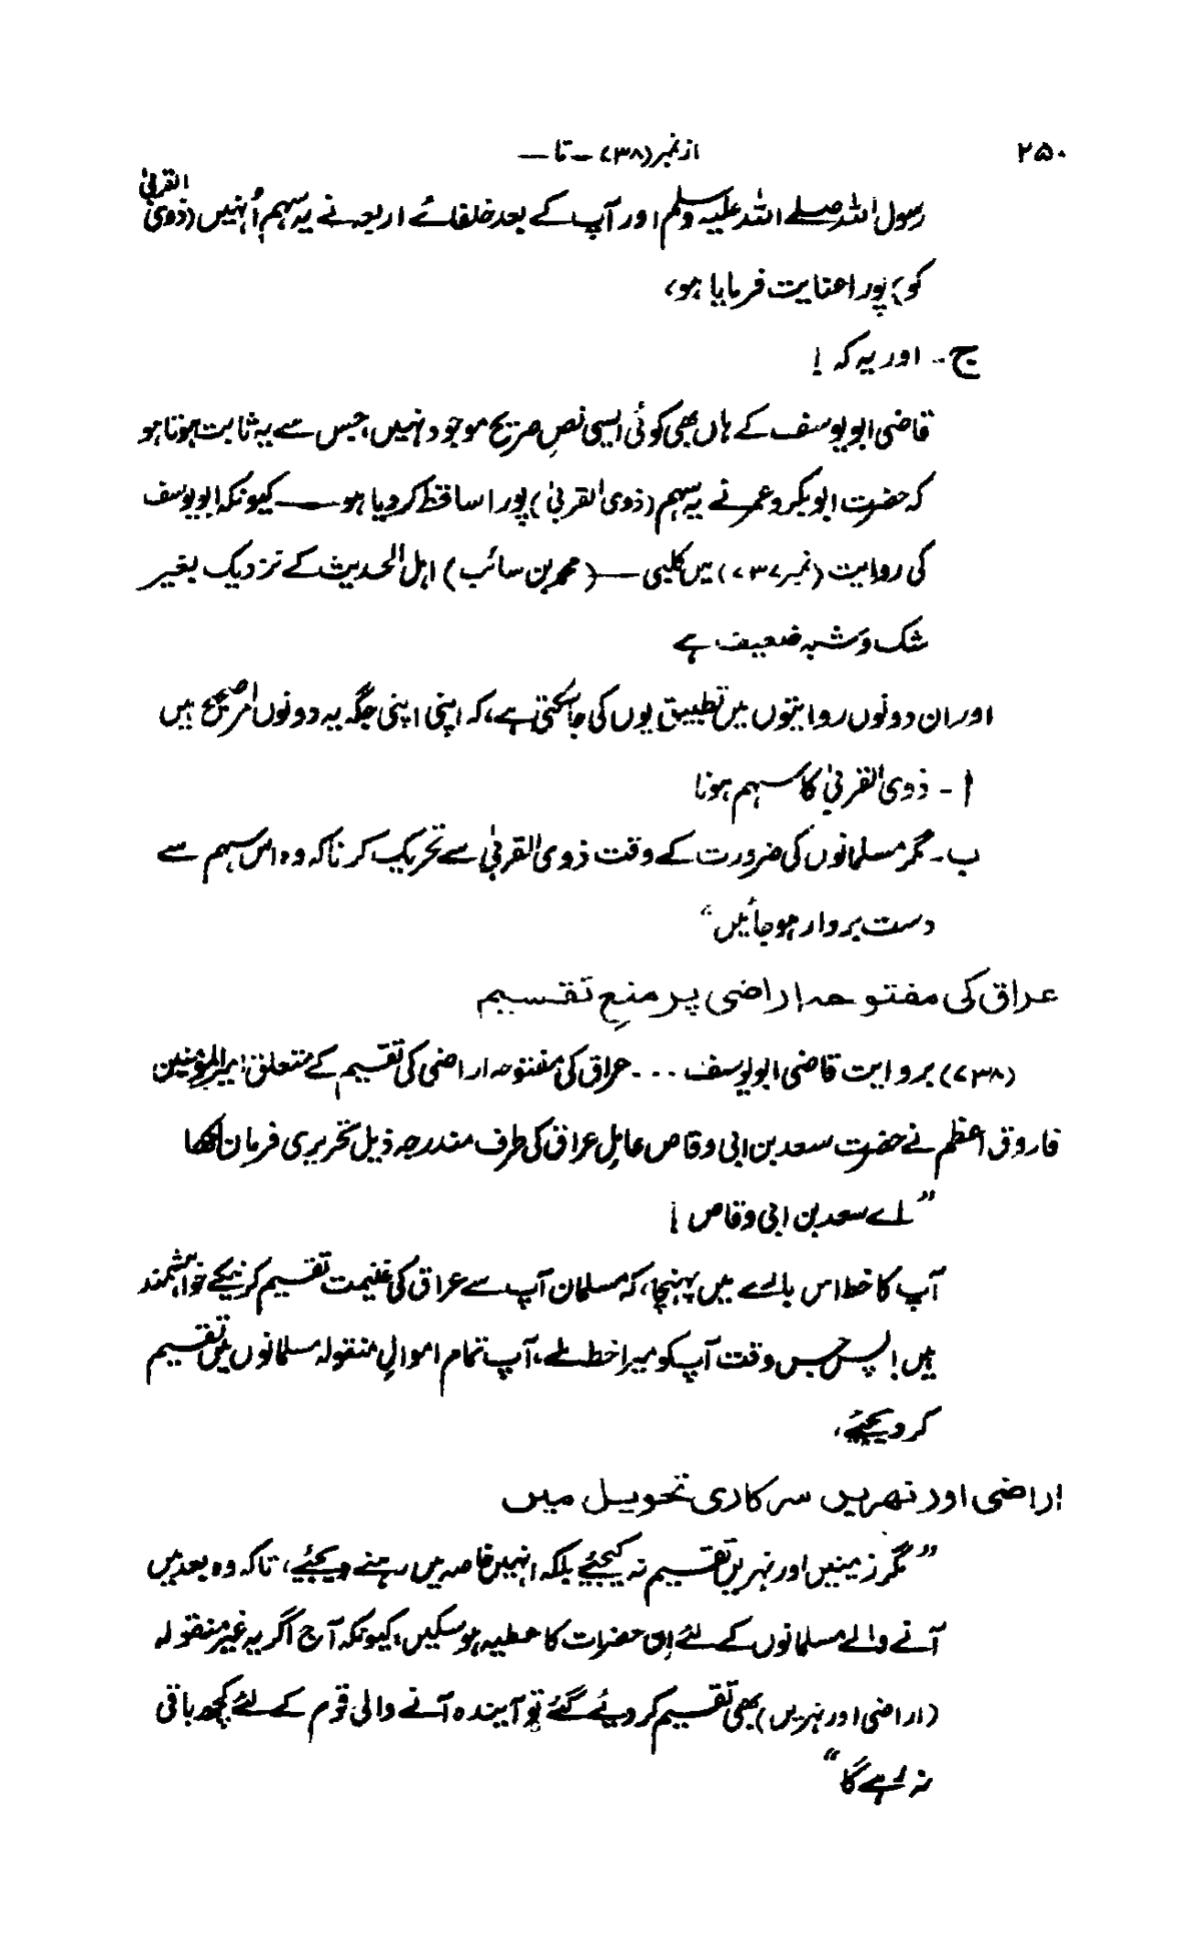 ۲۵۰
از نمبر (۷۳۸) — تا —
رسول اللہ صلے اللہ علیہ وسلم اور آپ کے بعد خلفائے اربعہ نے یہ سہم اُنہیں (ذوی القربیٰ
کو) پورا عنایت فرمایا ہو،
ج۔ اور یہ کہ !
قاضی ابو یوسف کے ہاں بھی کوئی ایسی نصِ صریح موجود نہیں، جس سے یہ ثابت ہوتا ہو
کہ حضرت ابو بکر و عمر نے یہ سہم (ذوی القربیٰ) پورا ساقط کر دیا ہو — کیونکہ ابو یوسف
کی روایت (نمبر ۷۳۷) میں کلبی — (محمد بن سائب) اہل الحدیث کے نزدیک بغیر
شک و شبہ ضعیف ہے
اور ان دونوں روایتوں میں تطبیق یوں کی جا سکتی ہے، کہ اپنی اپنی جگہ یہ دونوں امر صحیح ہیں
ا۔ ذوی القربیٰ کا سہم ہونا
ب۔ مگر مسلمانوں کی ضرورت کے وقت ذوی القربیٰ سے تحریک کرنا کہ وہ اس سہم سے
دست بردار ہو جائیں“
عراق کی مفتوحہ اراضی پر منعِ تقسیم
(۷۳۸) بروایت قاضی ابو یوسف ... عراق کی مفتوحہ اراضی کی تقسیم کے متعلق امیر المؤمنین
فاروق اعظم نے حضرت سعد بن ابی وقاص عاملِ عراق کی طرف مندرجہ ذیل تحریری فرمان لکھا
”اے سعد بن ابی وقاص !
آپ کا خط اس بارے میں پہنچا، کہ مسلمان آپ سے عراق کی غنیمت تقسیم کرنیکے خواہشمند
ہیں! پس جس وقت آپکو میرا خط ملے، آپ تمام اموالِ منقولہ مسلمانوں میں تقسیم
کر دیجئے،
اراضی اور نہریں سرکاری تحویل میں
”مگر زمینیں اور نہریں تقسیم نہ کیجئے بلکہ انہیں خاصہ میں رہنے دیجئے، تاکہ وہ بعد میں
آنے والے مسلمانوں کے لئے ان حضرات کا عطیہ ہو سکیں، کیونکہ آج اگر یہ غیر منقولہ
(اراضی اور نہریں) بھی تقسیم کر دیئے گئے تو آیندہ آنے والی قوم کے لئے کچھ باقی
نہ رہے گا“